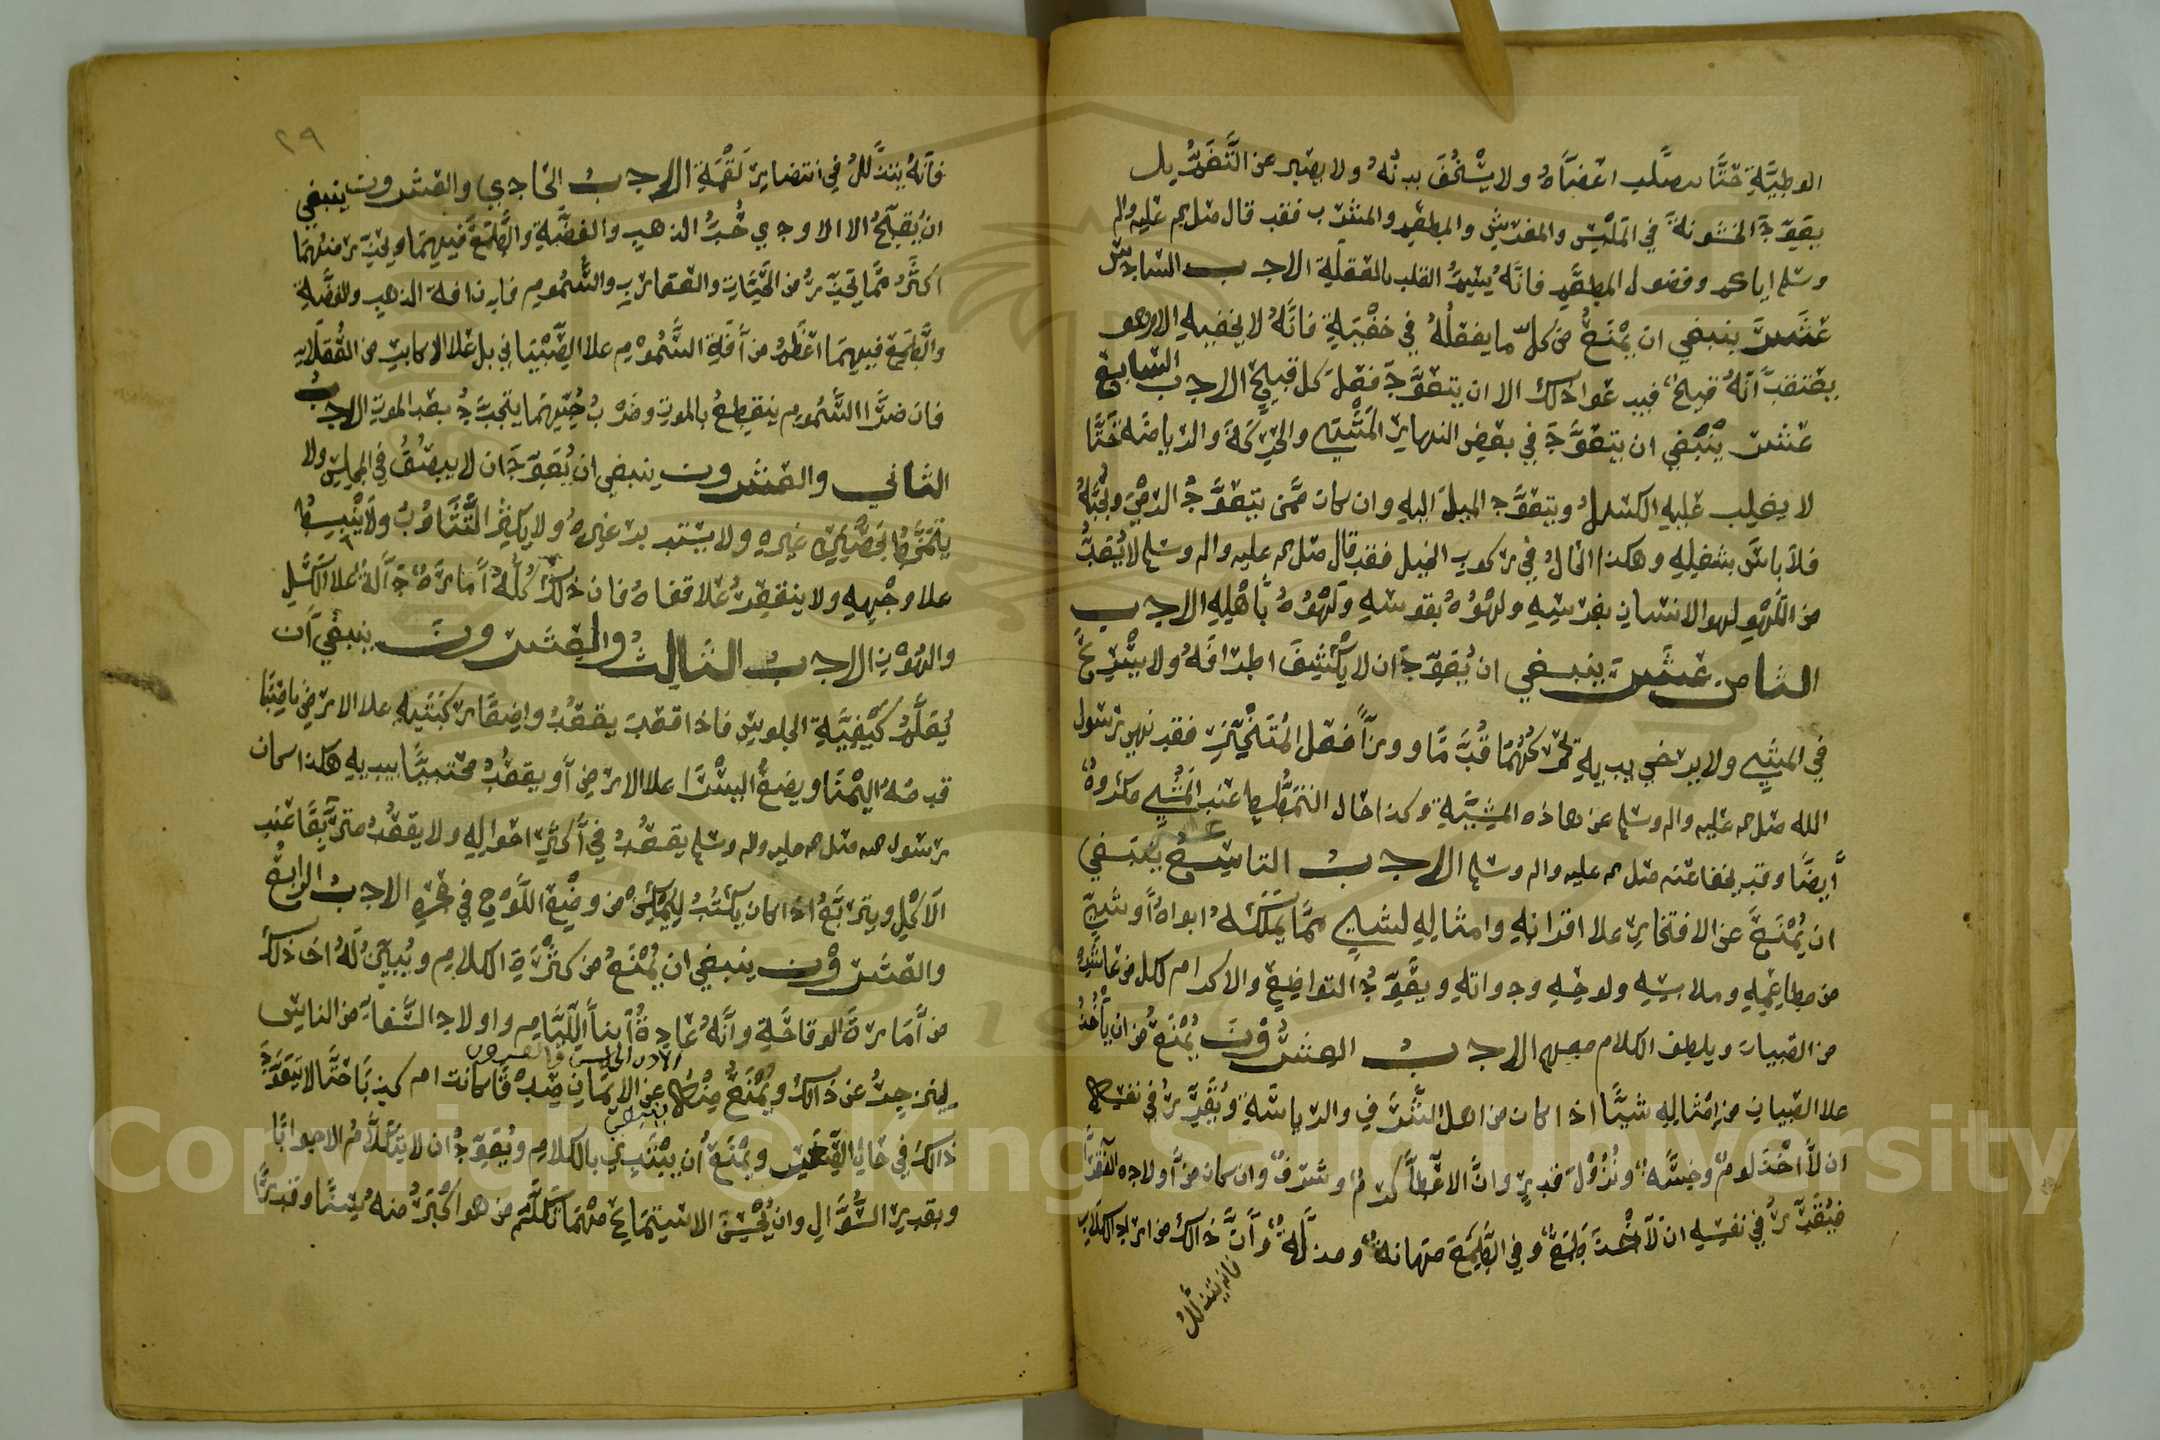 الوطيَّةِ حَتَّا تتصلَّب اعضَآهُ ولا يسْخُفَ بدنُهُ ولا يصبر عن التَّنَعُّمِ بل
يعَوِّدَ الخشونةَ في المَلْبس والمفرش والمطعم والمشرب فقد قال صلى الله عليه واله
وسلم اياكم وفضول المطعم فانَّهُ يسِمُ القلب بالغفلةِ الادب السادس
عَشَر ينبغي ان يُمْنَعَ من كلّ ما يفعلُهُ في خفْيَةٍ فانَّهُ لا يخفيهِ الا وهو
يعتقدُ أنَّهُ قبيحٌ فيدعوا ذلك الا ان يتعوَّدَ فعلَ كل قبيحٍ الادب السابع
عشر ينبْغي ان يتعَوَّدَ في بعض النهار المَشْيَ والحركةَ والرياضة حَتَّا
لا يغلِب عليهِ الكسلُ ويتعوَّد الميلَ اليهِ وان كان ممَّن يتعوَّدُ الرمْيَ ويُحبُّهُ
فلا باسَ بشغلِهِ وهكذا الحَالُ في ركوب الخيل فقد قال صلى الله عليه واله وسلم لا يُعَدُّ
من اللَهْو لهو الانسان بفرسِهِ ولهْوُهُ بقوسِهِ ولَهْوُهُ بأهْلِهِ الادب
الثامن عشر ينبغي ان يُعَوِّدَ ان لا يكْشِفَ اطرَافَهُ ولا يسْرِعَ
في المشي ولا يرخي يديهِ بل يحرِّكُهُمَا قُدَّامًا ووراًَ فعل المُتَبَخْتِرِ فقد نهى رسول
الله صلى الله عليه واله وسلم عن هاذه المِشْيَةِ وكذا حَال التمَطِّط عند المَشْيِ مكروهٌ
أيضًا وقد نهَا عنه صلى الله عليه واله وسلم الادبُ التاسعُ عشر ينبغي
ان يُمْنَعَ عن الافتخار علا اقرانهِ وامثالِهِ لشيءٍ ممَّا يَمْلكُهُ ابواهُ أو شيءٍ
من مطاعِمِهِ وملابسِهِ ولوحِهِ ودواتهِ ويعَوِّدُ التواضِعَ والاكرام لكل من عاشَرهُ
من الصبيان ويلطف الكلام معهم الادبُ العشرُوْنَ يُمْنَعُ من ان يأخُذُ
علا الصبيان من امْثَالِهِ شيئًا اذا كان من اهل الشرَف والرياسَةِ ويُقَرِّرُ في نفسِهِ
ان لاَ اخْذَ لومٌ وخِسَّهٌ ونُزُوْلَ قدرٍ وانَّ الاعْطآَ كرَمٌ وشرَفٌ وان كان من أولاد الفُقَرَآءِ
فيُقَرِّرُ في نفسِهِ ان لاَ اخْذَ طَمَعٌ وفي الطَمَعِ مَهانةٌ ومذلَّةٌ وأنَّ ذالكَ من ارادِ الكلابِ
فانه يتذلَّلُ
٢٩
فانَّهُ يتذلَّلُ في انتضارِ لَقْمَةِ الادبُ الحادي والعشرون ينبغي
ان يُقبِّحُ الا الاودي حُبَّ الذهبِ والفضَّةِ والطَمَعَ فيهِمَا ويُحَذِّر منهُمَا
اكثَرَ ممَّا يُحَذِّرُ من الحيَّاتِ والعقاربِ والسُّمومِ فان افة الذهبِ والفضَّةِ
والطَمَعَ فيهمَا اعْظَمُ من آفَةِ السُّمُوْمِ علا الصِّبْيَانِ بل علا الاكابِر من العُقَلاَءِ
فان ضرَرَ السُّمُوم ينقطعُ بالموتِ وضَرَبُ حُبِّهِمَا يتجدَّدُ بعد الموتِ الادبُ
الثاني والعشرون ينبغي ان يُعَوَّدَ ان لا يبصُقَ في المجلسِ ولا
يتمَخَّطَ بحَضْرَةِ غيرِهِ ولا يستدبر غيرهُ ولا يكثر التَّثَاوُبُ ولا يَنْبسِطُ
علا وجْهِهِ ولا ينقعِرُ علا قفاهُ فان ذلكَ كُلَّهُ أمارةٌ دَآلَةٌ علا الكسَلِ
والهَوْن الادبُ الثالثُ والعشرونَ ينبغي أن
يُعَلَّمَ كَيْفِيَّةِ الجلوس فاذا قعدَ يقعُدُ واضعًا ركبَتَيهِ علا الارضِ ناصِبًا
قدمَهُ اليُمْنَا ويضعُ اليسْرَا علا الارضِ أو يقعُدُ محتبيًا بيديهِ هكذا كان
رسول الله صلى الله عليه واله وسلم يقعُدُ في أكثرِ احْوالِهِ ولا يقعُدُ متربِّعًا عندَ
الاَكْلِ ويتربَّعُ اذا كان يكْتُبُ ليُمْكِنَ من وضْعِ اللَّوْحِ في حجرِهِ الادبُ الرابعُ
والعشرُوْنَ ينبغي ان يُمْنَعُ من كثْرَةِ الكلامِ ويُبَيّنُ لَهُ ان ذلكَ
من أمَارةَ الوقاحَةِ وأنَّهُ عَادةُ أبناءِ اللِّيَامِ واولادِ السُّفهاءِ من الناسِ
الادب الخامس والعشرون
لينزجِرُ عن ذالكَ ويُمْنَعُ مِنْهُ عن الايمانِ صِدْقًا كانت ام كذبًا حَتَّا لا يتَعَوَّدَ
ينبغي
ذالكَ في حَالِ الصِّغَرِ ويُمْنَعُ أن يبْتَدِي بالكلامِ ويُعَوَّدُ ان لا يتَكَلَّمُ الا جوابًا
وبقدرِ السُّؤالِ وان يُحْسِنَ الاستِمَاعِ مَهْمَا تكلَّمَ من هو اكْبَرُ منه سِنًّا وقدرًا